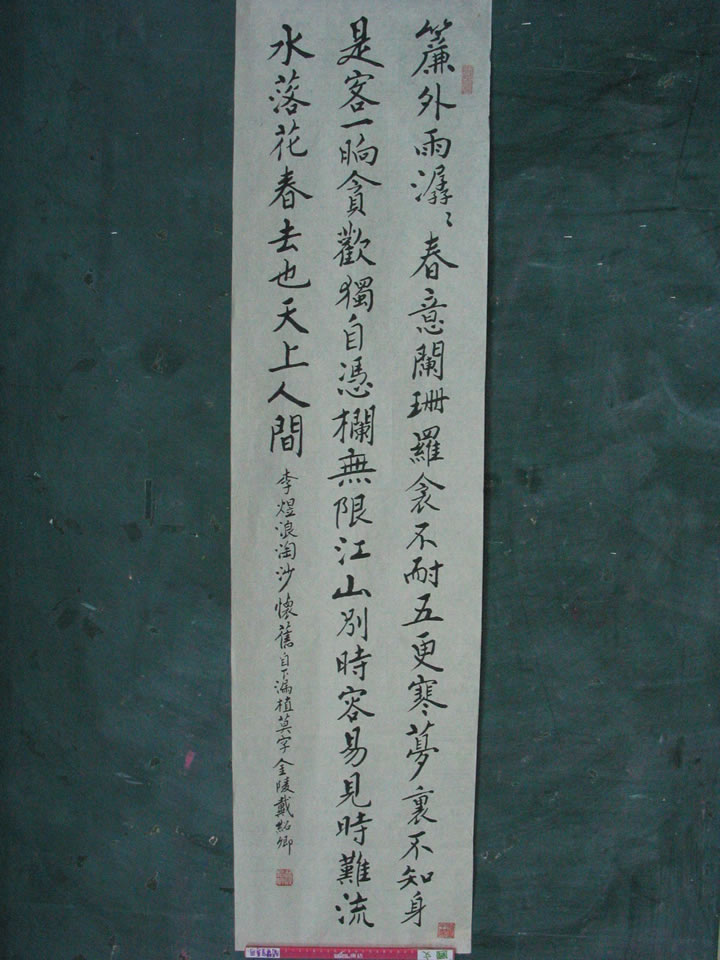 簾外雨潺〻春意闌珊羅衾不耐五更寒夢裏不知身
是客一晌貪歡獨自憑欄無限江山別時容易見時難流
水落花春去也天上人間
李煜浪淘沙懷舊自下漏植莫字金陵戴紹卿